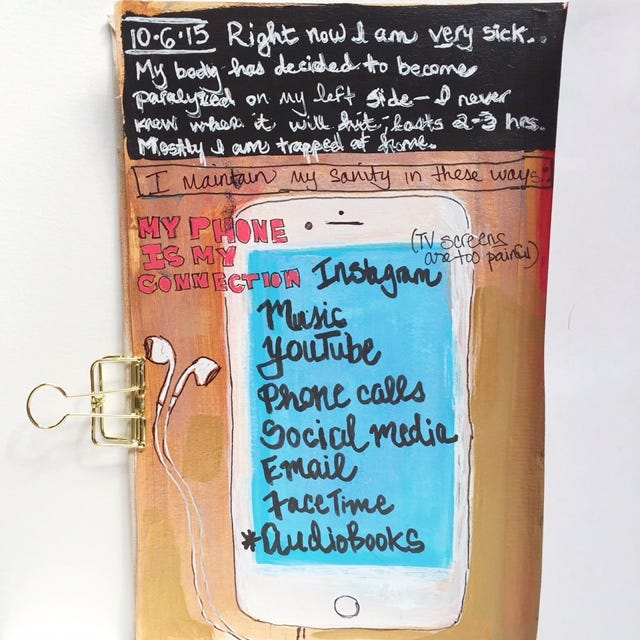 10-6-15 Right now I am very sick..
My body has decided to become
paralyzed on my left side - I never
know when it will hit, lasts 2-3 hrs.
Mostly I am trapped at home.
I maintain my sanity in these ways:
MY PHONE
IS MY
CONNECTION
(TV screens
are too painful)
Instagram
Music
YouTube
Phone calls
Social media
Email
FaceTime
*AudioBooks